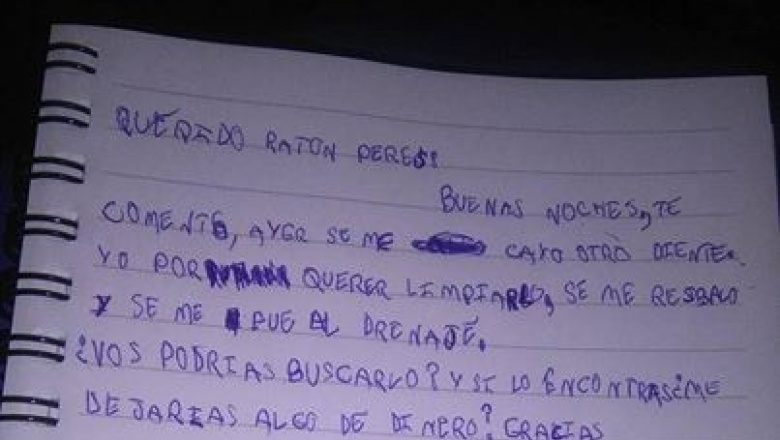 QUERIDO RATON PERES:
BUENAS NOCHES, TE
COMENTE, AYER SE ME CAYO OTRO DIENTE.
YO POR QUERER LIMPIARLO, SE ME RESBALO
Y SE ME FUE AL DRENAJE.
¿VOS PODRIAS BUSCARLO? Y SI LO ENCONTRAS ¿ME
DEJARIAS ALGO DE DINERO? GRACIAS